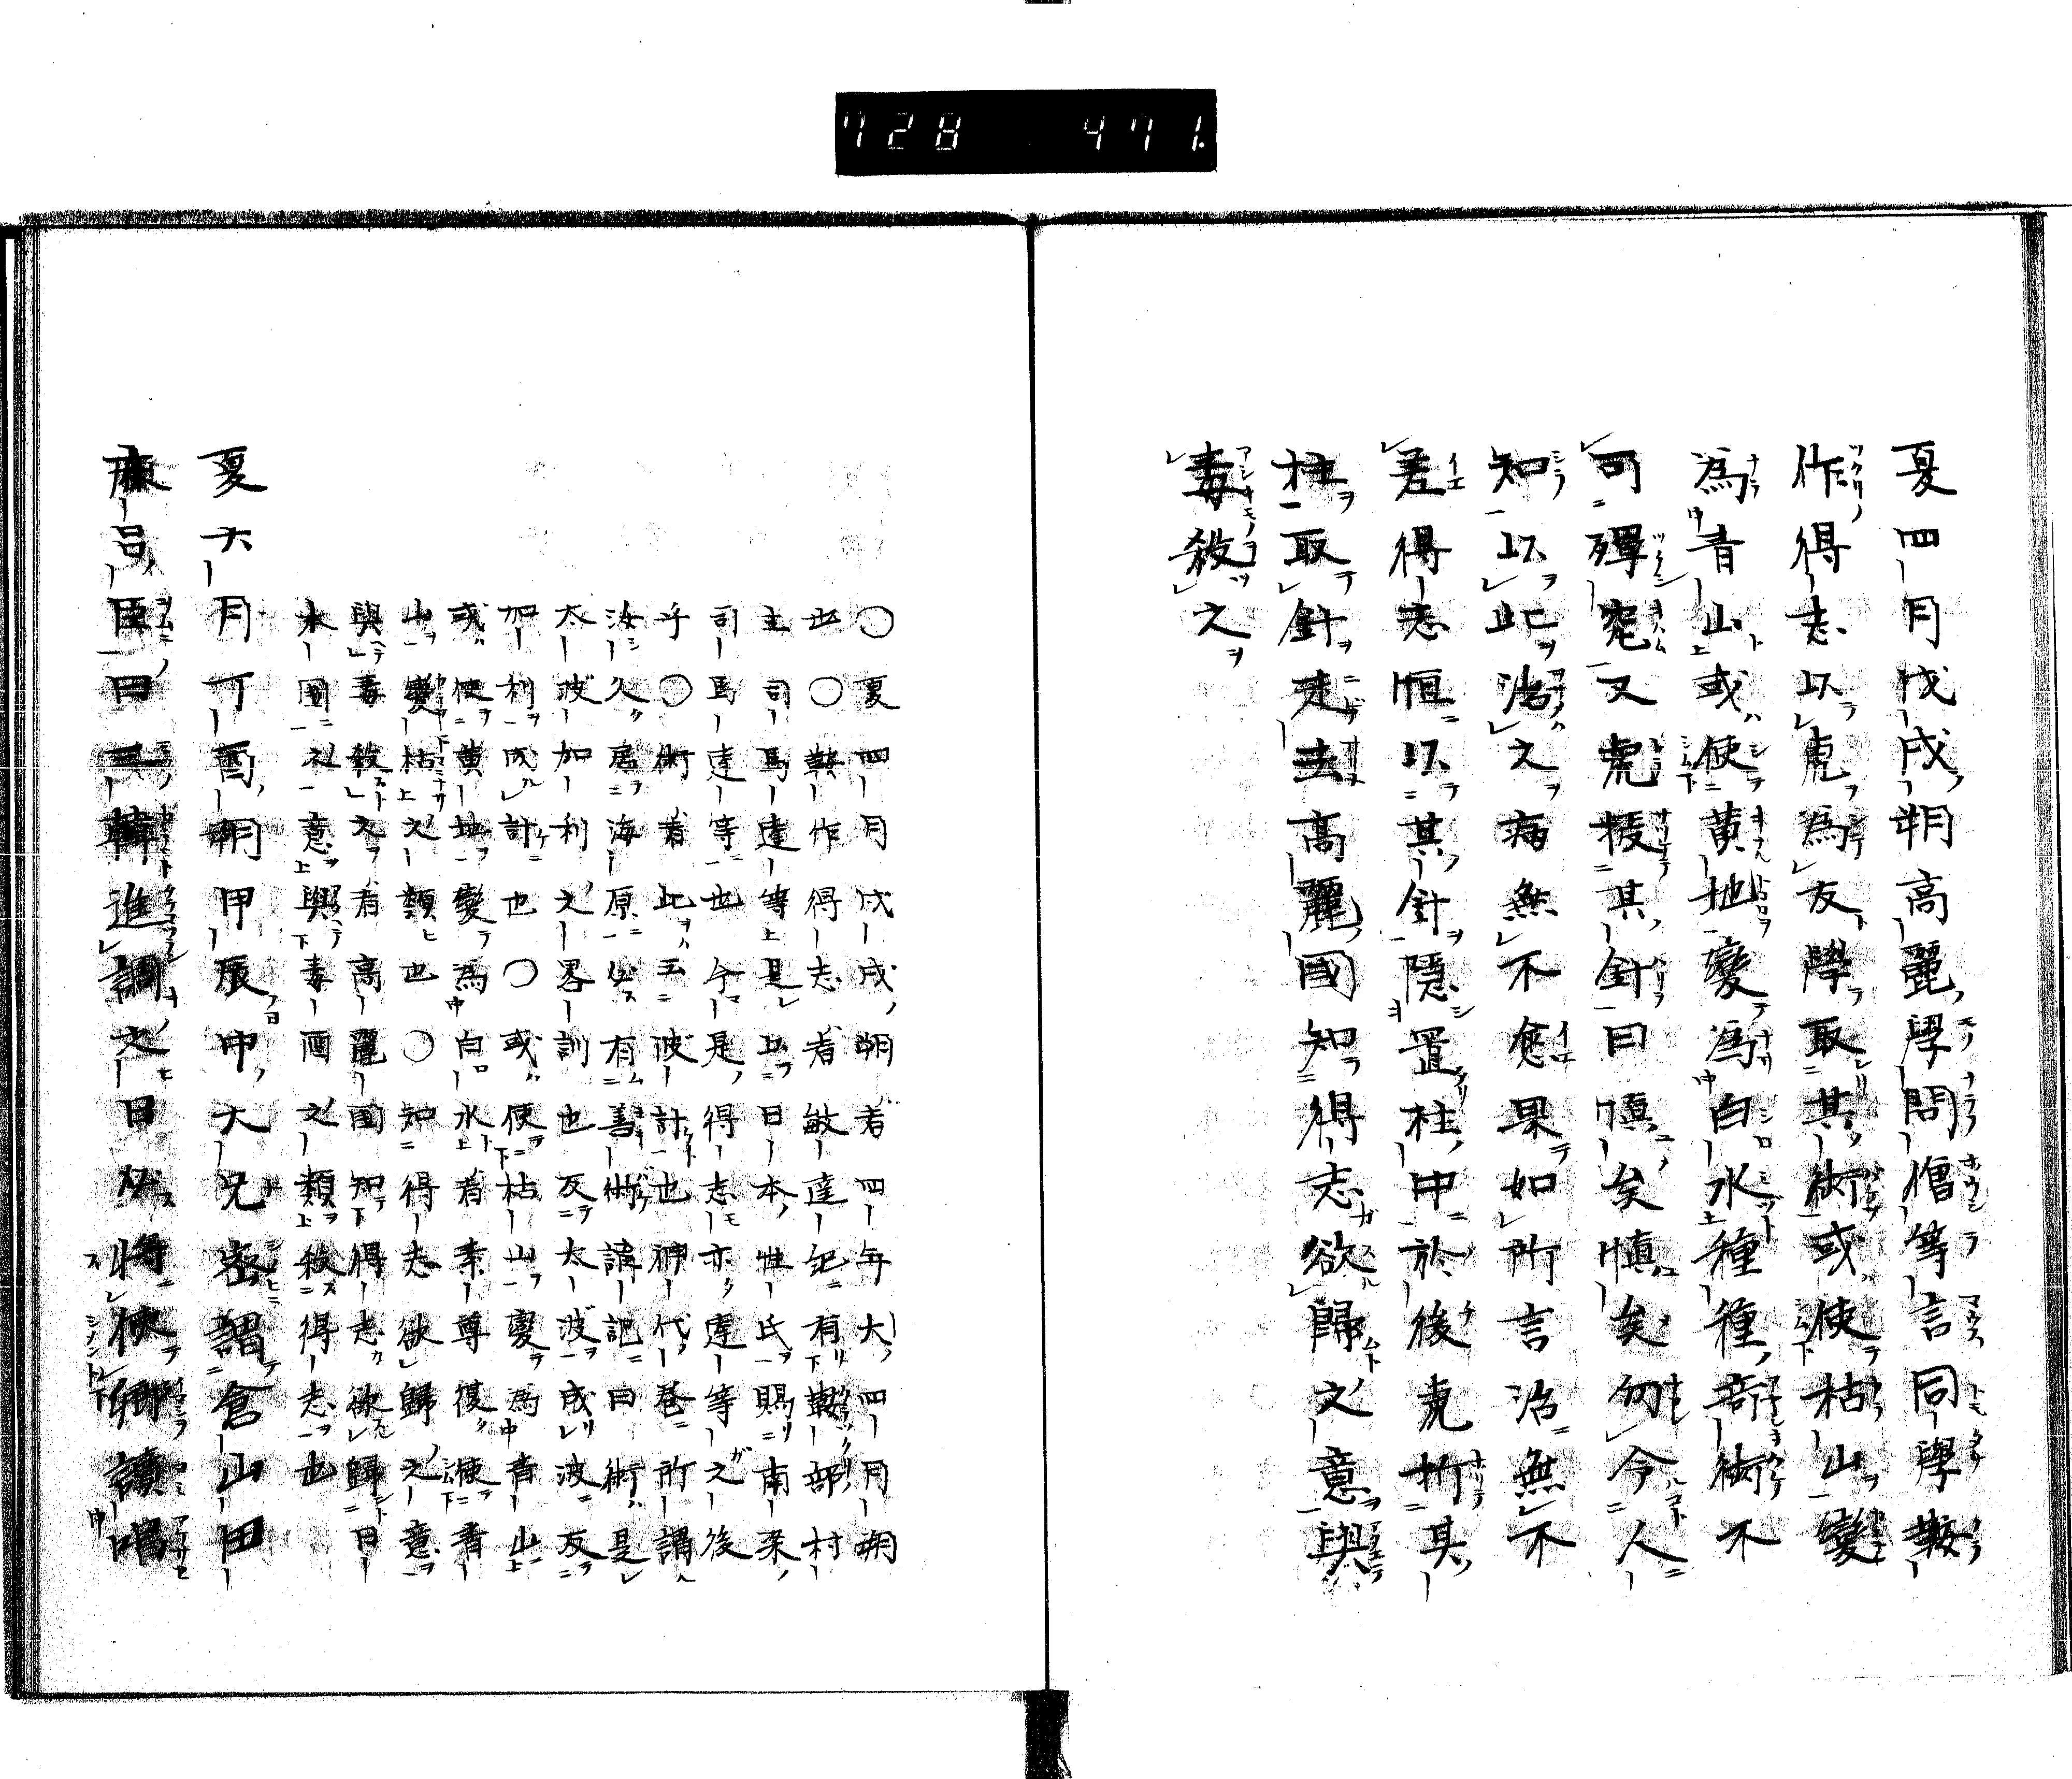 728 471.
夏四月戊戌朔高麗學問僧等言同學鞍
作得志以虎為友學取其術或使枯山變
為青山或使黃地變為白水種種奇術不
可殫究又虎授其針曰慎矣慎矣勿令人
知以此治之病無不愈果如所言治無不
差得志恒以其針隱置柱中於後虎折其
柱取針走去高麗國知得志欲歸之意與
毒殺之
〇夏四月戊戌朔者四年大四月朔
也〇鞍作得志者敏達紀有鞍部村
主司馬達等是以曰本姓氏賜南梁
司馬達等也今是得志亦達等之後
乎〇術者此云彼計也神代卷所謂
汝久居海原必有善術講記曰術是
太波加利之畧訓也反太波成波反
加利成計也〇或使枯山變為青山
或使黃地變為白水者素尊復使青
山變枯之類也〇知得志欲歸之意
與毒殺之者高麗國知得志欲歸日
本國之意與毒酒之類殺得志也
夏六月丁酉朔甲辰中大兄密謂倉山田
麻呂臣曰三韓進調之日必將使卿讀唱